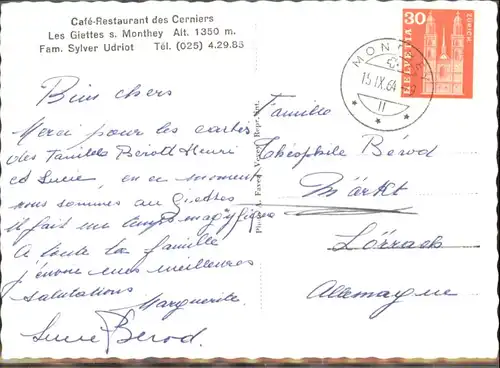 Café-Restaurant des Cerniers
Les Giettes s. Monthey Alt. 1350 m.
Fam. Sylver Udriot Tél. (025) 4.29.85
Biens chers
Merci pour les cartes
des familles Bérod Henri
et Lucie, en ce moment
nous sommes au Giettes
il fait un temps magnifique
A toute la famille
j'envoie mes meilleures
salutations
Marguerite.
Lucie Bérod.
A. Favez, Repr. int.
30
ZÜRICH
HELVETIA
MONTHEY
15.IX.64
II
Famille
Théophile Bérod
Märkt
Lörrach
Allemagne